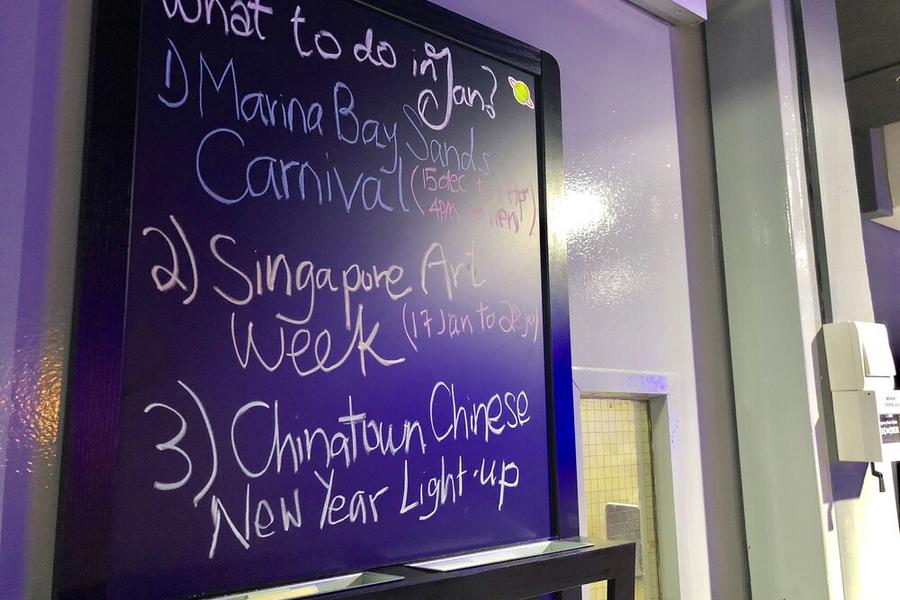 What to do in Jan?
1) Marina Bay Sands
Carnival (15 dec
4PM
2) Singapore Art
Week (17 Jan to 28
3) Chinatown Chinese
New Year Light-up